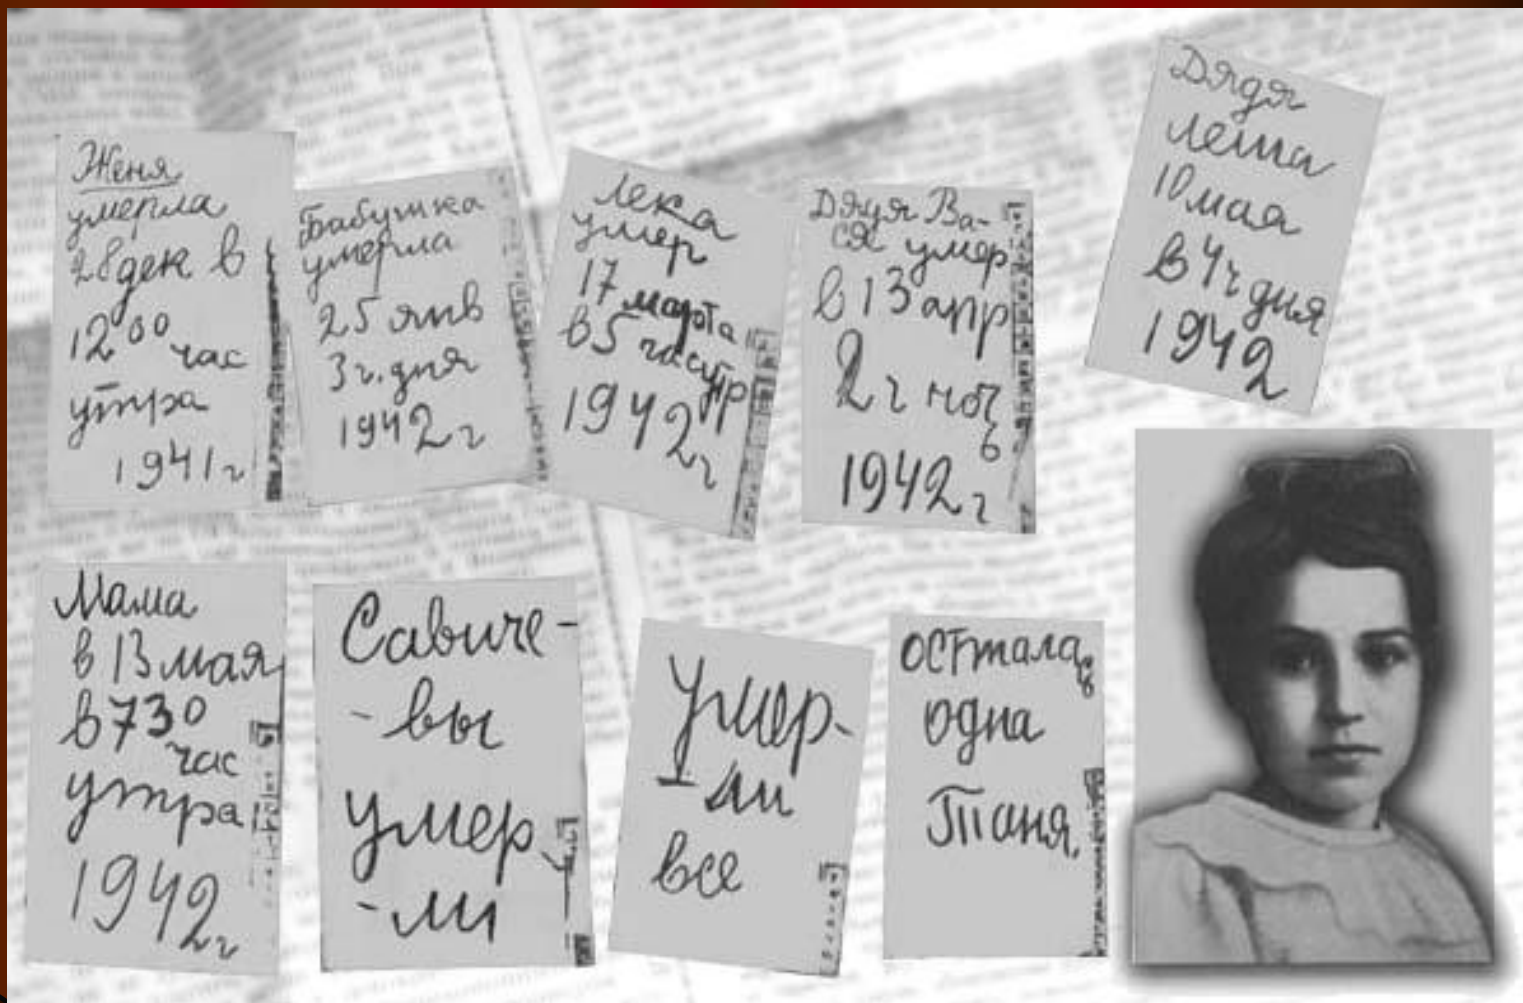 Женя
умерла
28 дек в
12 00 час
утра
1941 г
Бабушка
умерла
25 янв
3 ч. дня
1942 г
Лека
умер
17 марта
в 5 час утр
1942 г
Дядя Ва-
ся умер
в 13 апр
2 ч ноч
ь
1942 г
Дядя
Леша
10 мая
в 4 ч дня
1942
Мама
в 13 мая
в 7 30
час
утра
1942 г
Савиче-
-вы
умер
-ли
Умер-
-ли
все
Осттала
сь
одна
Таня.